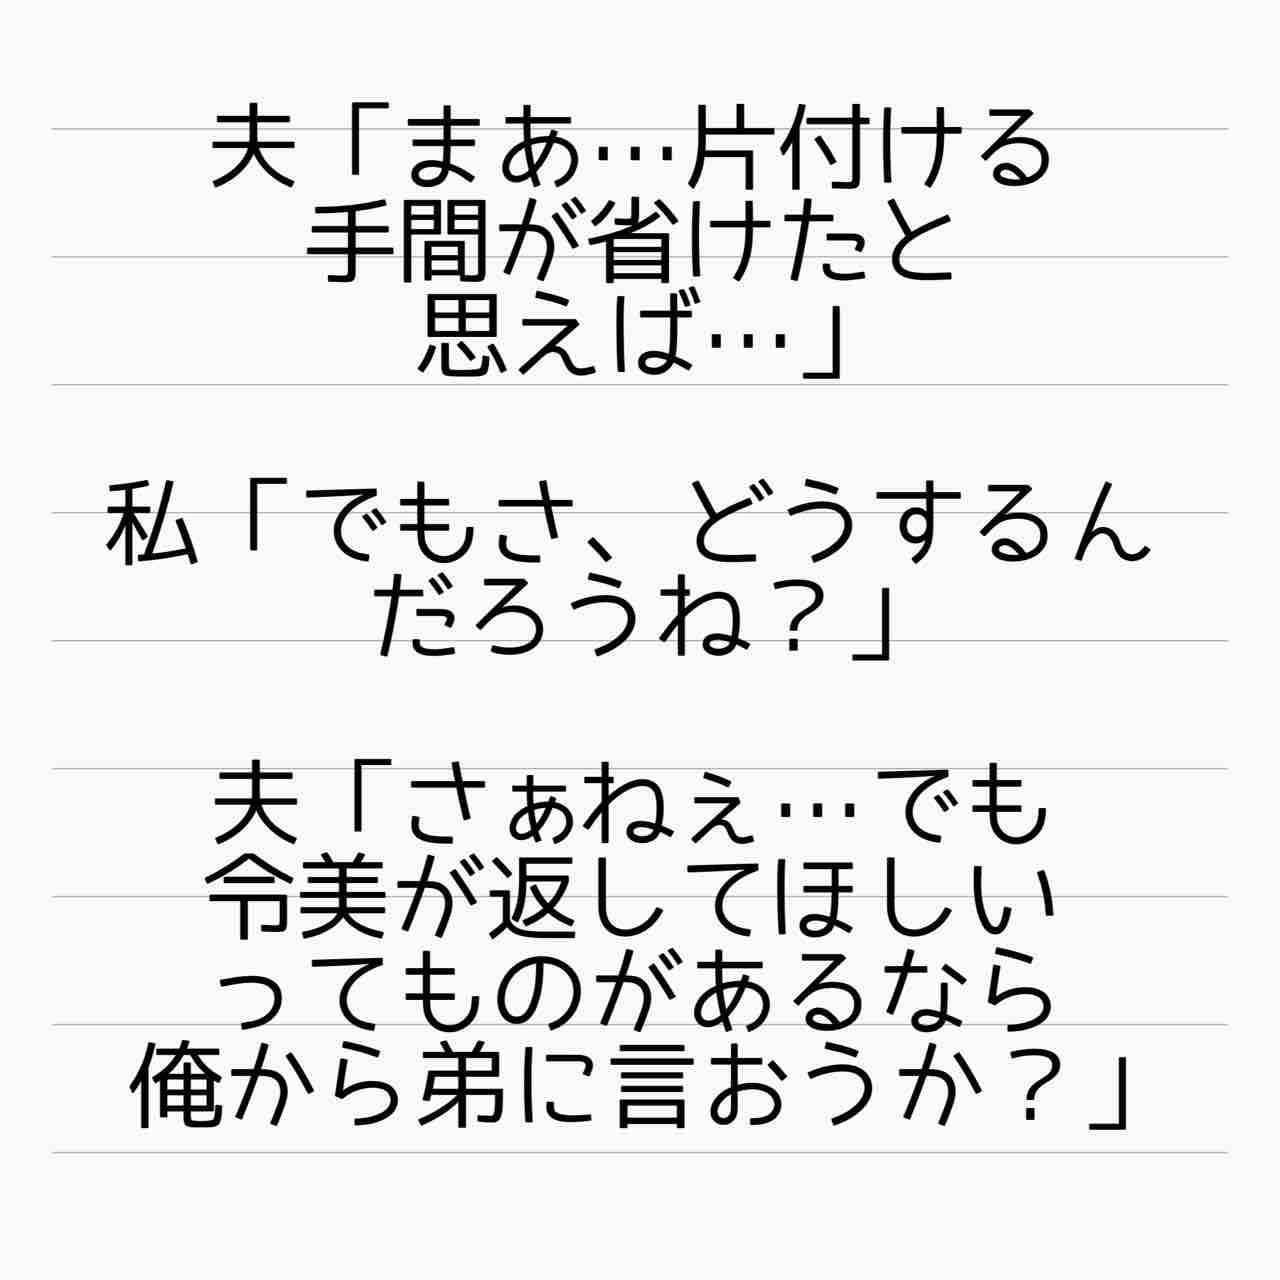 夫「まあ…片付ける
手間が省けたと
思えば…」
私「でもさ、どうするん
だろうね？」
夫「さぁねぇ…でも
令美が返してほしい
ってものがあるなら
俺から弟に言おうか？」